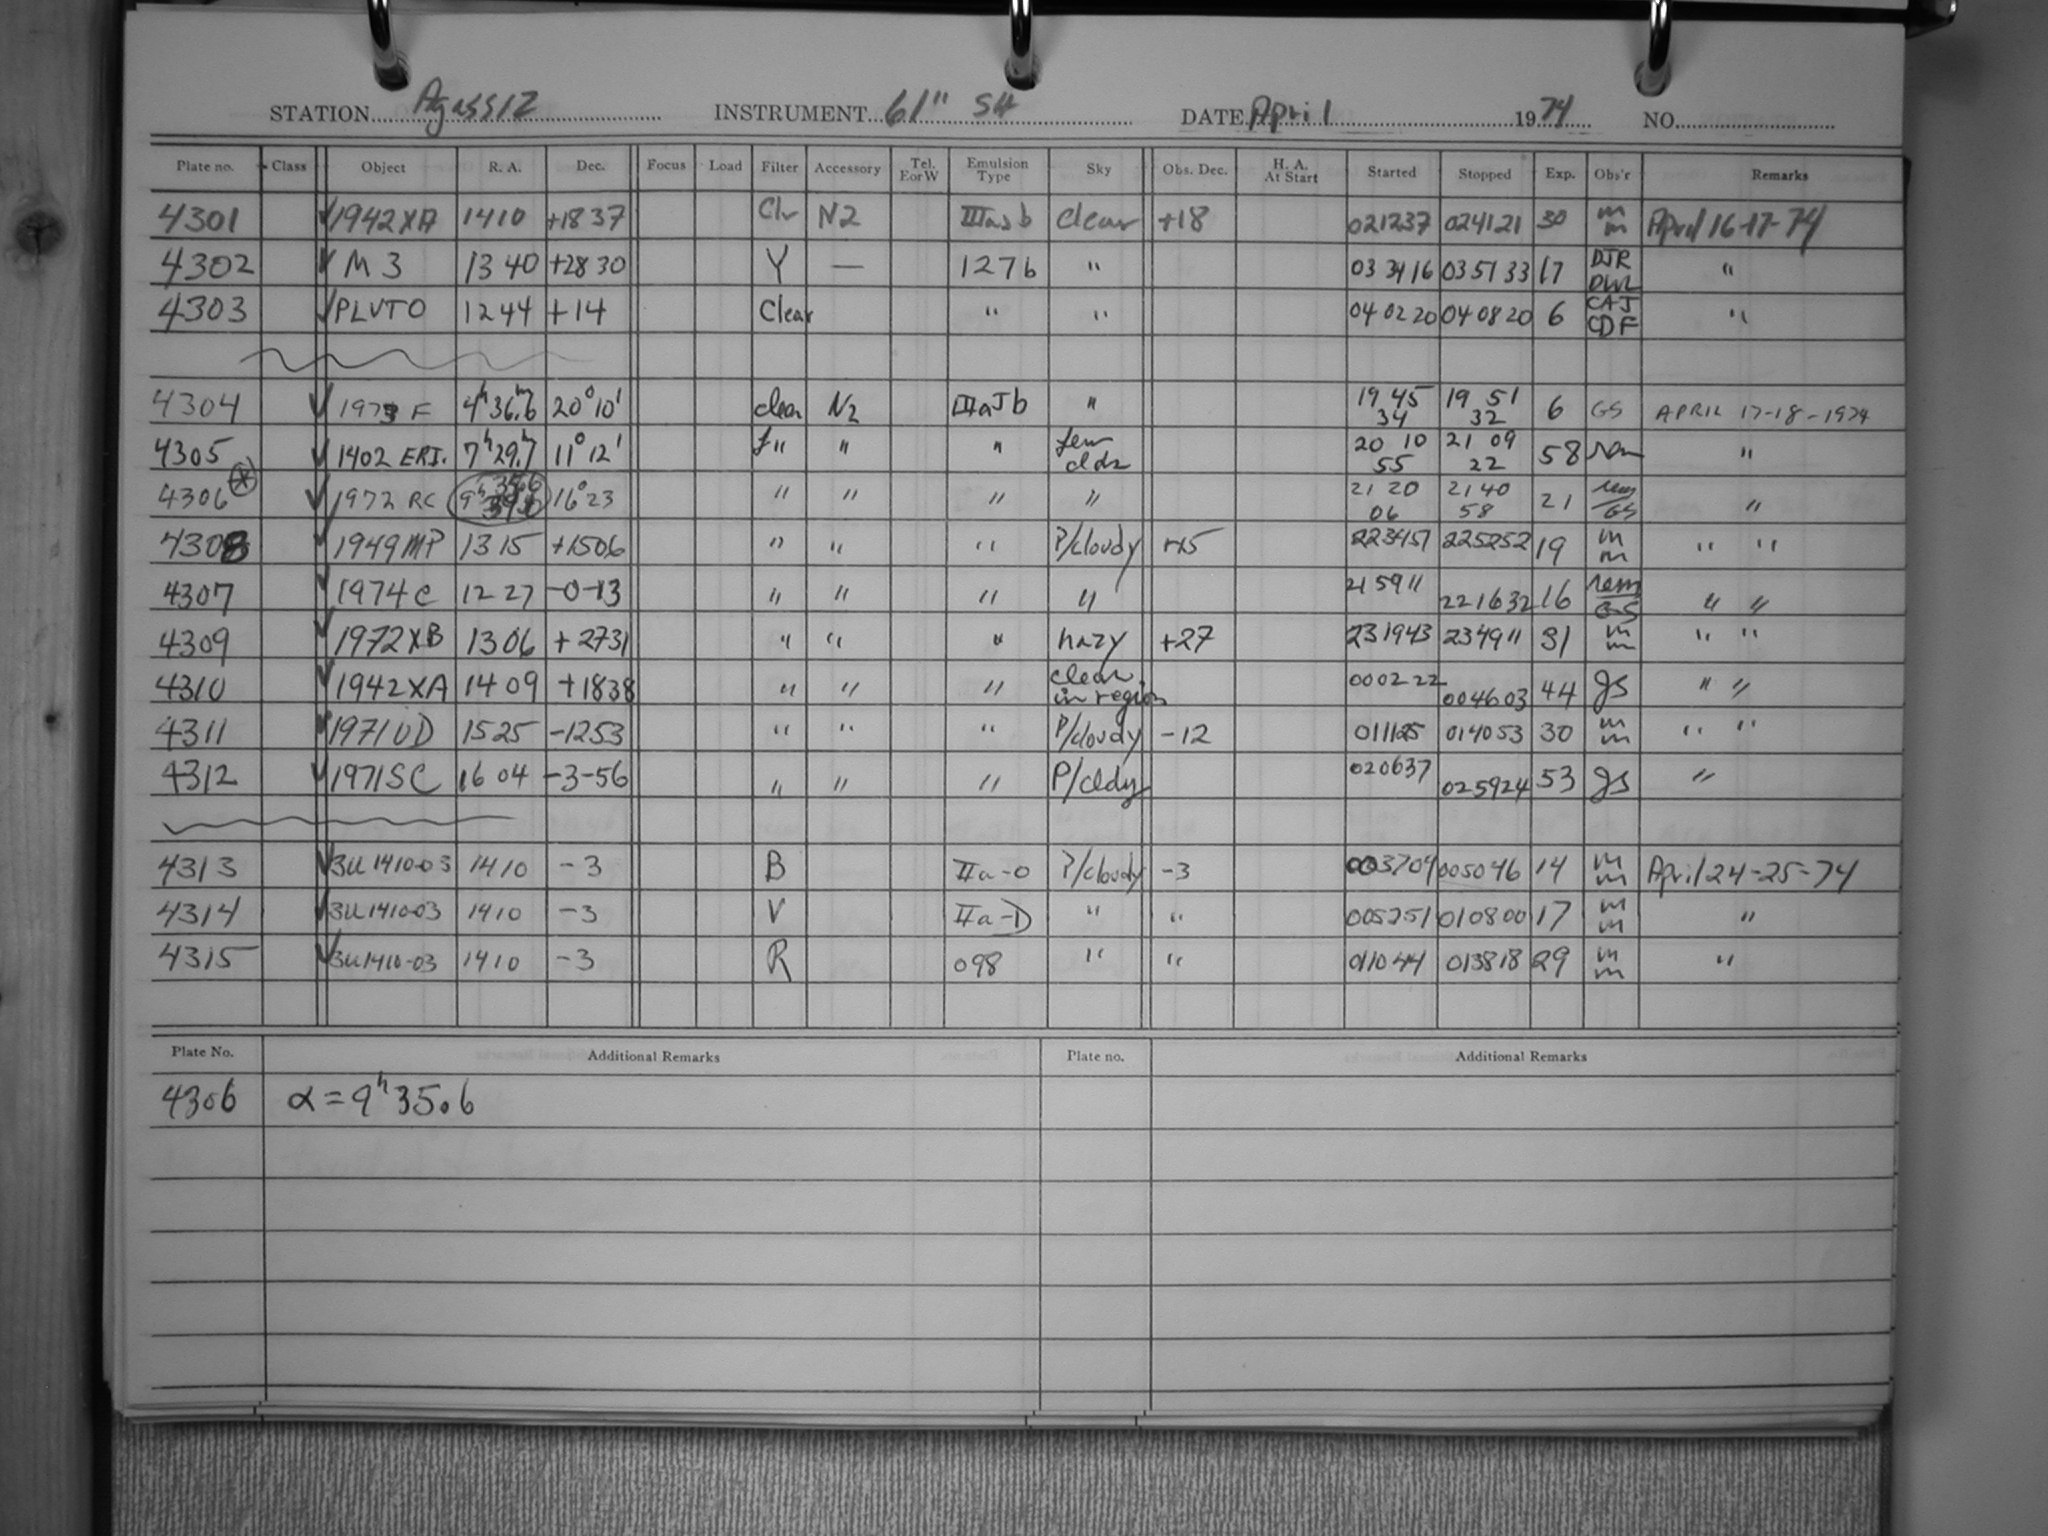 STATION Agassiz INSTRUMENT 61" SH DATE April 1974 NO.
Plate no. Class Object R. A. Dec. Focus Load Filter Accessory Tel. EorW Emulsion Type Sky Obs. Dec. H. A. At Start Started Stopped Exp. Obs'r Remarks
4301 ✓ 1942XA 1410 +1837 Clr N2 IIIaJb clear +18 021237 024121 30 m m April 16-17-74
4302 ✓ M 3 13 40 +28 30 Y — 127b " 03 34 16 03 51 33 17 DJR DWL "
4303 ✓ PLUTO 12 44 +14 Clear " " 04 02 20 04 08 20 6 CAJ CDF "
4304 ✓ 1973 F 4h 36.m6 20° 10' clear N2 IIIaJb " 19 45 34 19 51 32 6 GS APRIL 17-18-1974
4305 ✓ 1402 ERI. 7h 29.7 11° 12' " " " few clds 20 10 55 21 09 22 58 rem "
4306 ⊗ ✓ 1972 RC 9h 35.6 16° 23 " " " " 21 20 06 21 40 58 21 rem/GS "
4308 ✓ 1949MP 1315 +1506 " " " P/cloudy +15 223457 225252 19 m m " "
4307 ✓ 1974C 12 27 -0-13 " " " " 215911 221632 16 rem/GS " "
4309 ✓ 1972XB 1306 +2731 " " " hazy +27 231943 234911 31 m m " "
4310 ✓ 1942XA 14 09 +1838 " " " clear in region 000222 004603 44 gs " "
4311 ✓ 1971UD 1525 -1253 " " " P/cloudy -12 011125 014053 30 m m " "
4312 ✓ 1971SC 16 04 -3-56 " " " P/cldy 020637 025924 53 gs "
4313 ✓ 3U1410-03 1410 -3 B IIa-O P/cloudy -3 003704 005046 14 m m April 24-25-74
4314 ✓ 3U1410-03 1410 -3 V IIa-D " " 005251 010800 17 m m "
4315 ✓ 3U1410-03 1410 -3 R 098 " " 011044 013818 29 m m "
Plate No. Additional Remarks Plate no. Additional Remarks
4306 α = 9h 35.6